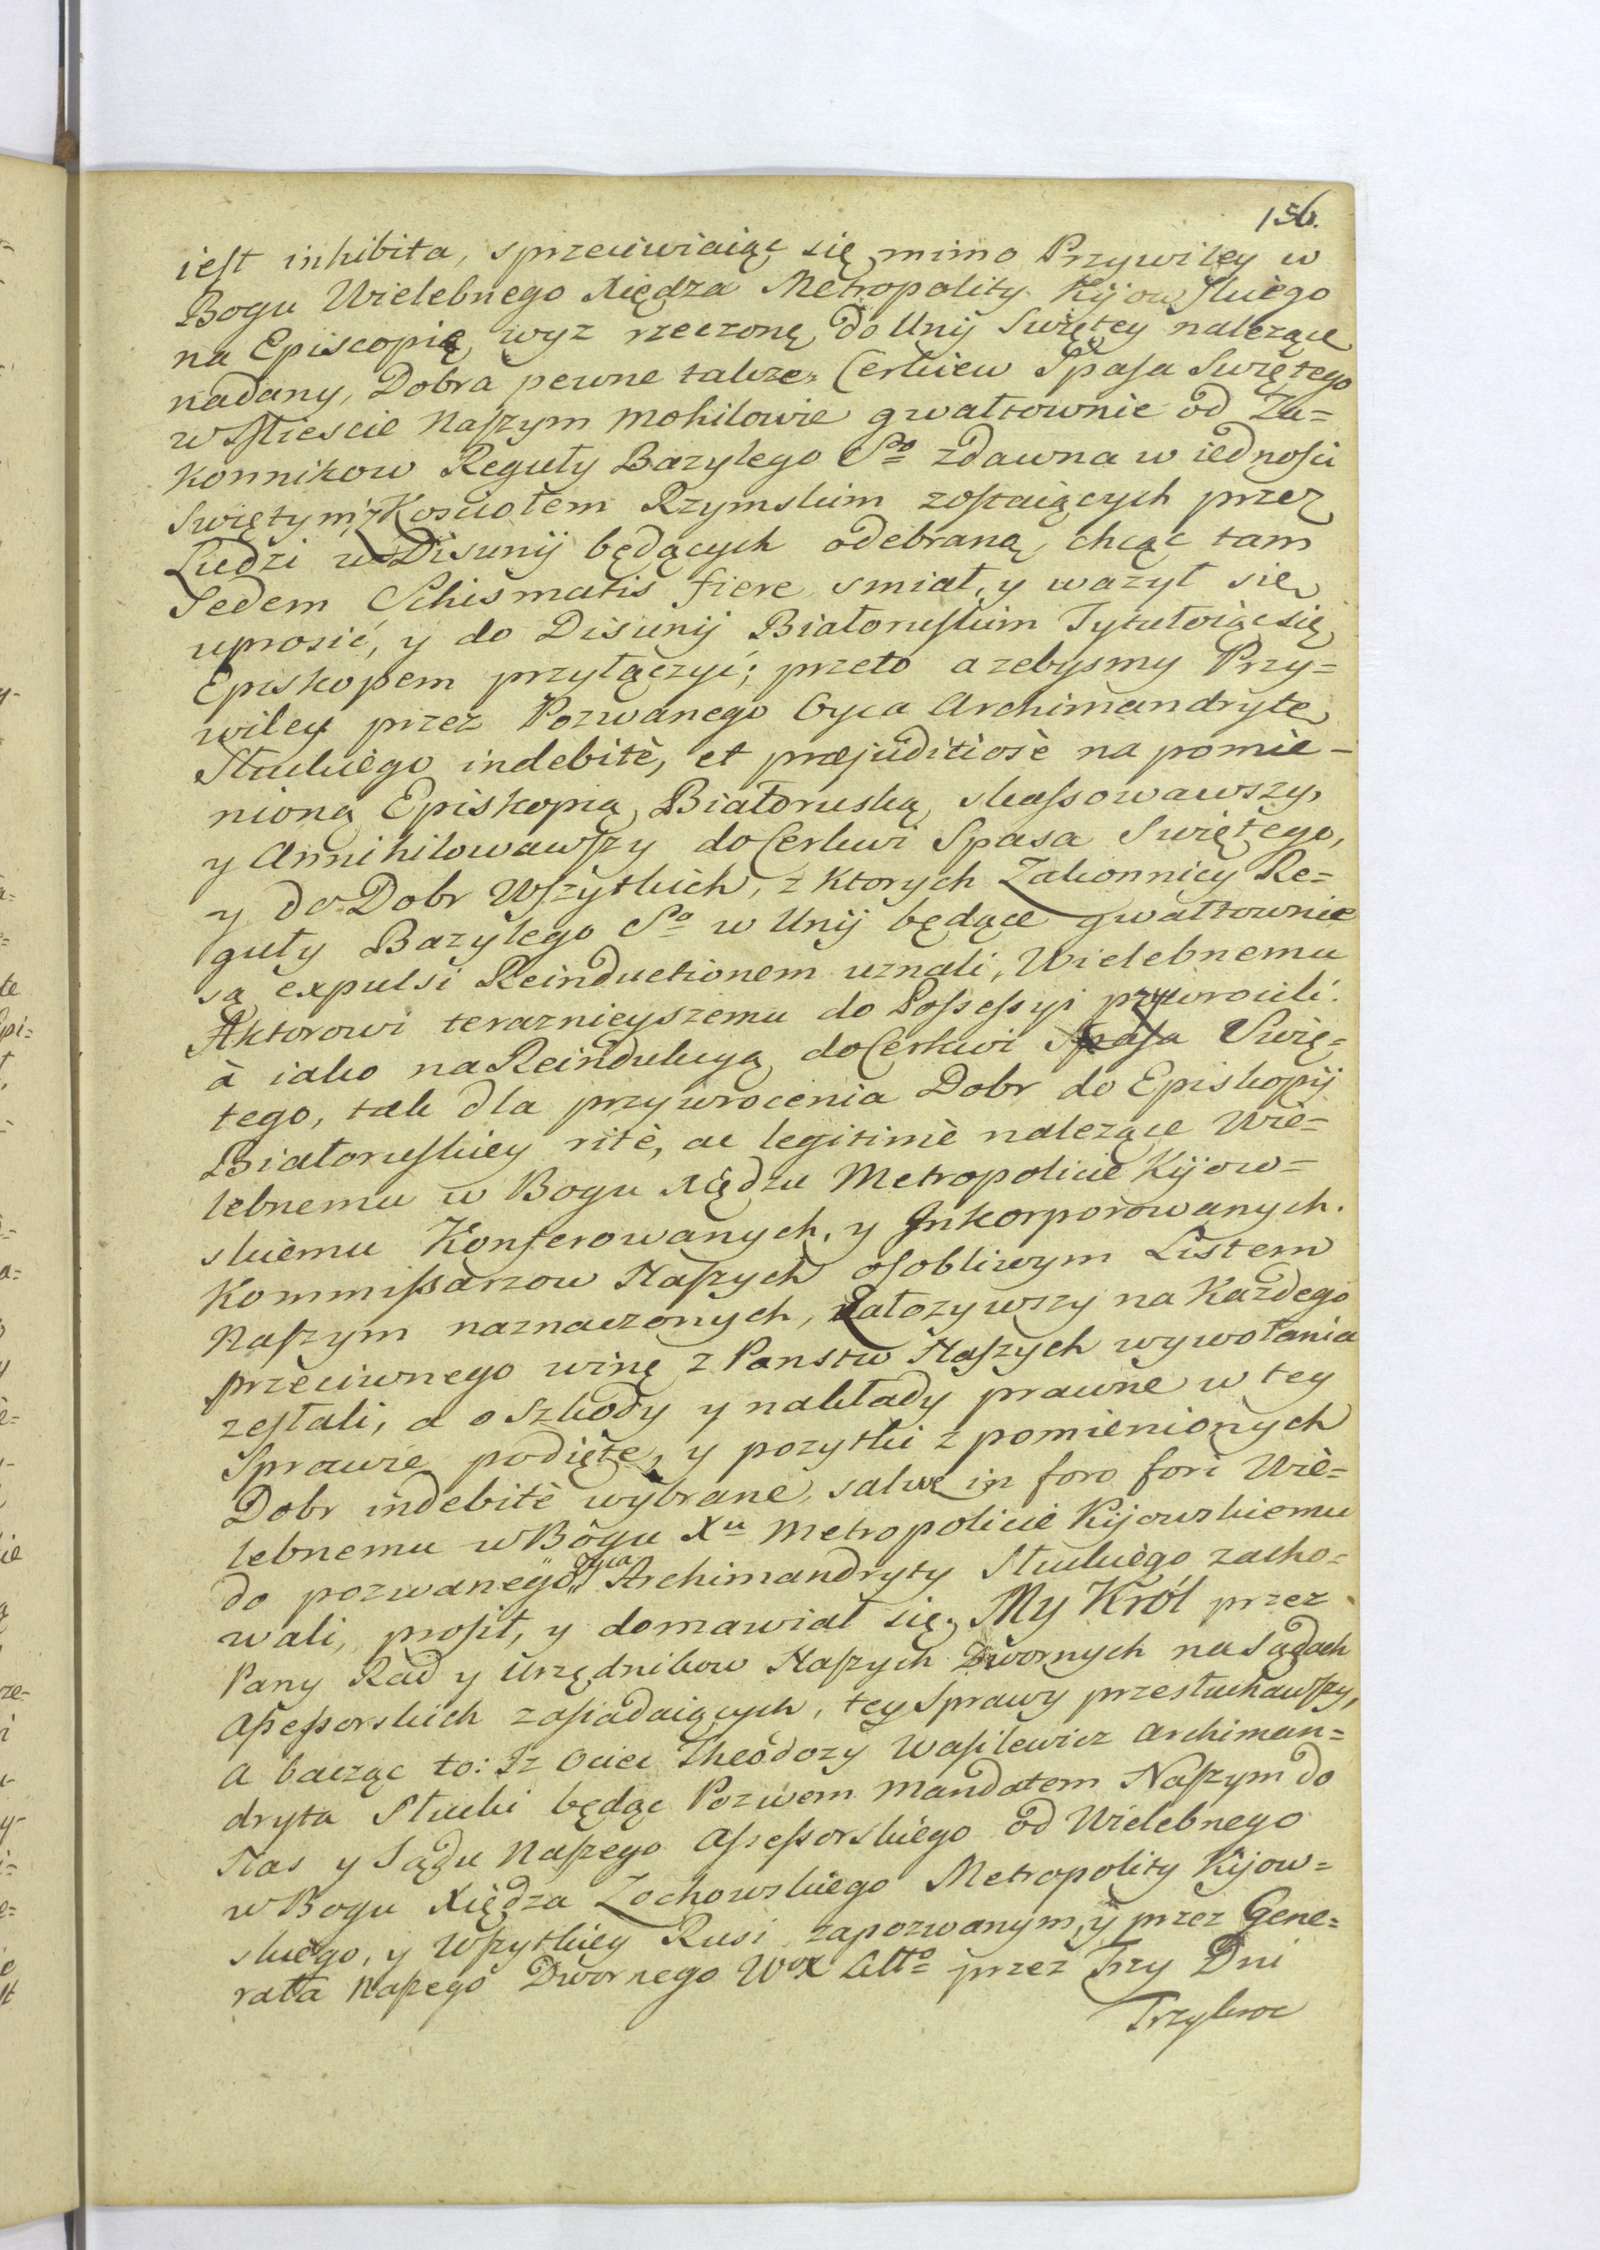 156.
iest inhibita, sprzeciwiaiąc się mimo Przywiley w
Bogu Wielebnego Xiędza Metropolity Kijowskiego
na Episcopię wyz rzeczoną do Unij Swiętey nalezące
nadany, Dobra pewne takze Cerkiew Spasa Swiętego
w Miescie Naszym Mohilowie gwałtownie od Za=
konnikow Reguły Bazylego Sgo zdawna w iedności
Swiętym z Kosciołem Rzymskim zostaiących przez
Ludzi w Disunij będących odebraną, chcąc tam
Sedem Schismatis fiere smiał, y wazył się
uprosić, y do Disunij Białoruskim Tytułuiąc się
Episkopem przyłączyć; przeto azebysmy Przy=
wiley przez Pozwanego Oyca Archimandrytę
Słuckiego indebitè, et præjuditiosè na pomie=
nioną Episkopią Białoruską skassowawszy,
y Annihilowawszy do Cerkwi Spasa Swiętego,
y do Dobr Wszytkich, z ktorych Zakonnicy Re=
guły Bazylego So w Unij będące gwałtownie
są expulsi Reinductionem uznali, Wielebnemu
Aktorowi teraznieyszemu do Possessyi przywrocili.
à iako na Reindukcyą do Cerkwi Spasa Swię=
tego, tak dla przywrocenia Dobr do Episkopij
Białoruskiey ritè, ac legitimè nalezące Wie=
lebnemu w Bogu Xiędzu Metropolicie Kijow=
skiemu Konferowanych, y Inkorporowanych.
Kommissarzow Naszych osobliwym Listem
Naszym naznaczonych, załozywszy na Kazdego
przeciwnego winę z Panstw Naszych wywołania
zesłali, a o szkody y nakłady prawne w tey
Sprawie podięte, y pozytki z pomienionych
Dobr indebitè wybrane, salwę in foro fori Wie=
lebnemu w Bogu Xu Metropolicie Kijowskiemu
do pozwanego Oyca Archimandryty Słuckiego zacho=
wali, prosił, y domawiał się. My Król przez
Pany Rad y Urzędnikow Naszych Dwornych na Sądach
Assessorskich zasiadaiących, tey Sprawy przesłuchawszy,
a bacząc to: Iz Ociec Theodozy Wasilewicz Archiman=
dryta Słucki będąc Pozwem Mandatem Naszym do
Nas y Sądu Naszego Assessorskiego od Wielebnego
w Bogu Xiędza Zochowskiego Metropolity Kijow=
skiego, y Wszytkiey Rusi zapozwanym, y przez Gene=
rała Naszego Dwornego WoX Litto przez Trzy Dni
Trzykroc